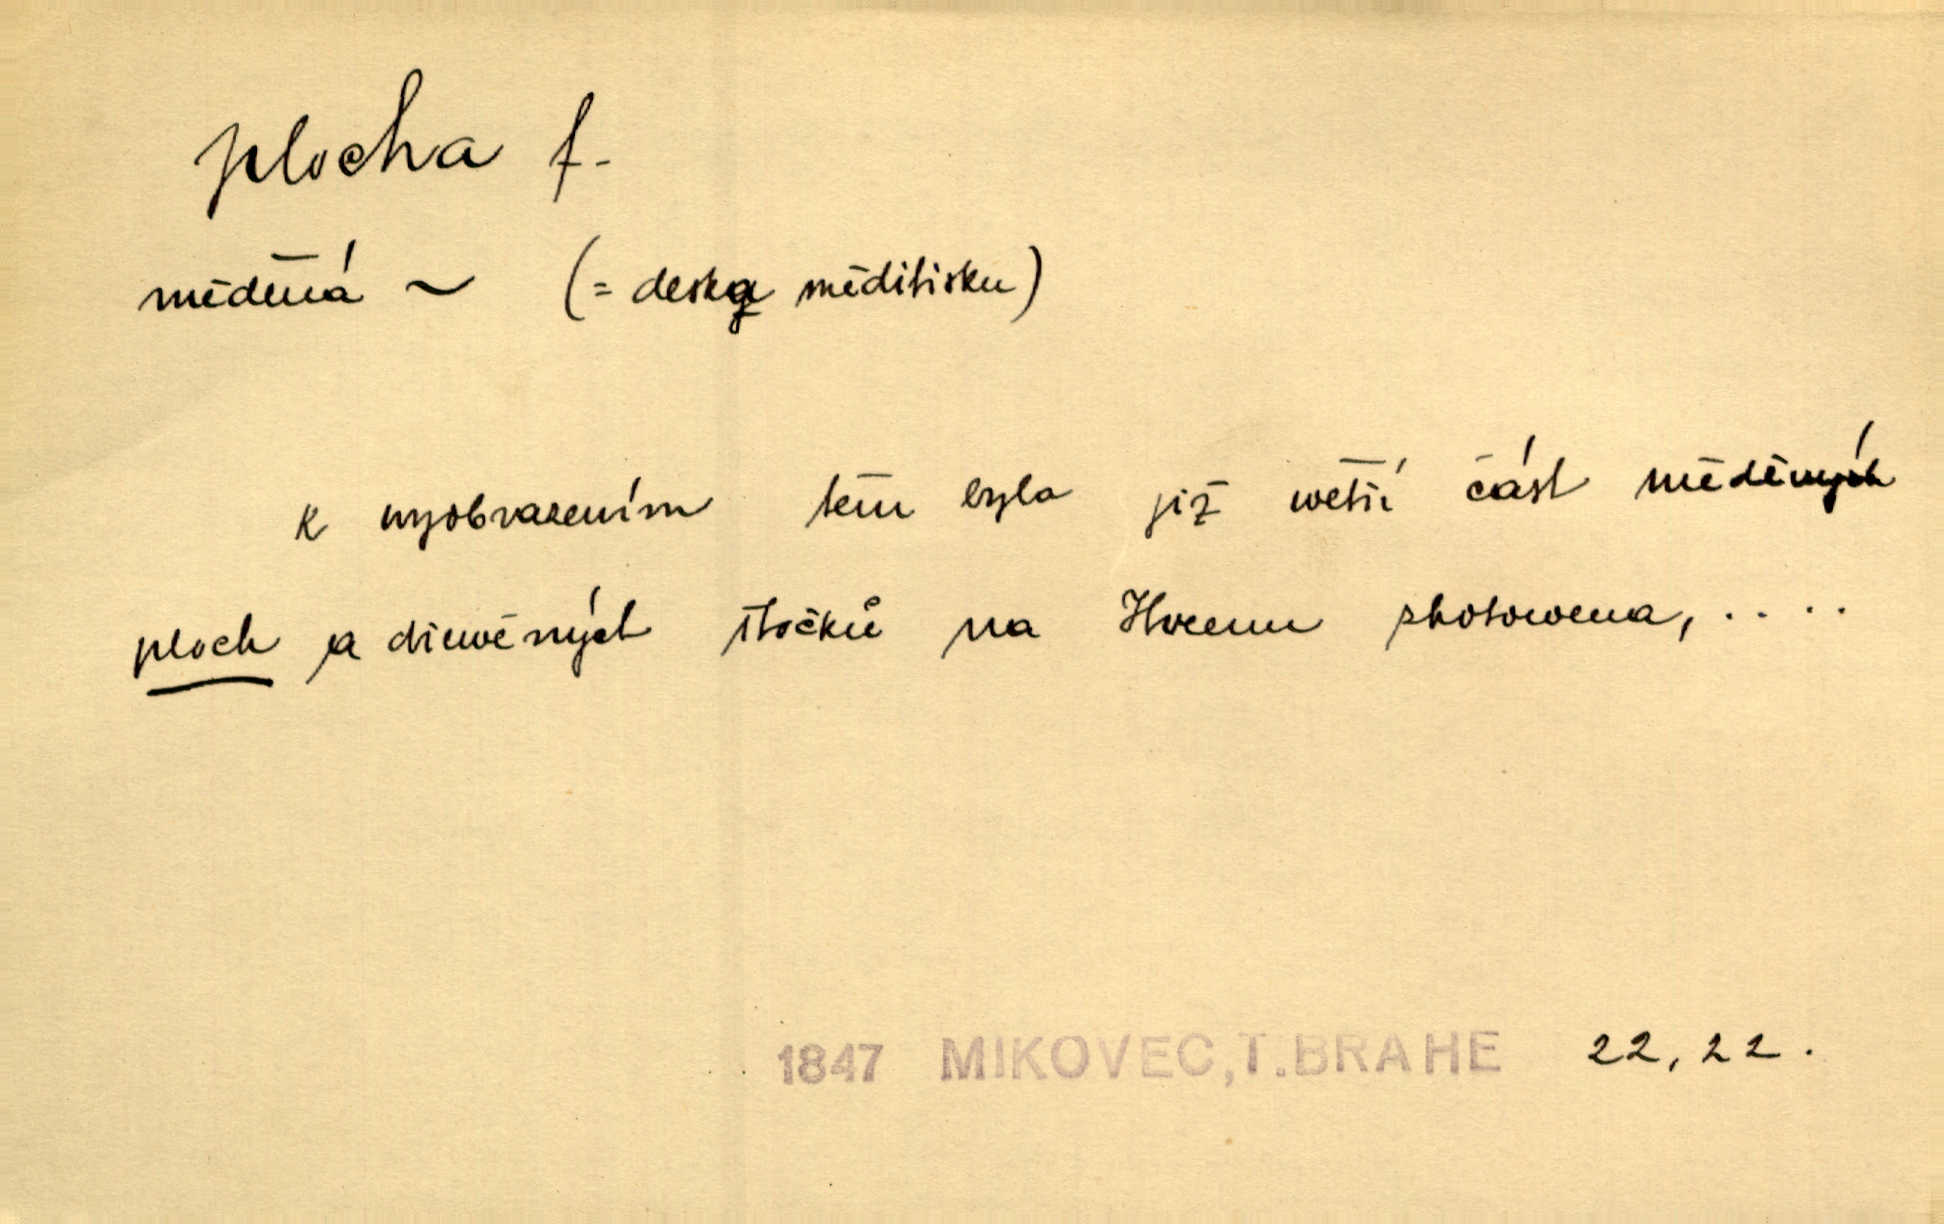 plocha f.
měděná ~ (= deska měditisku)
K wyobrazením těm byla již wětší část měděných
ploch a dřewěných štočků na Hvenu zhotowena, ....
1847 MIKOVEC, T. BRAHE 22, 22.